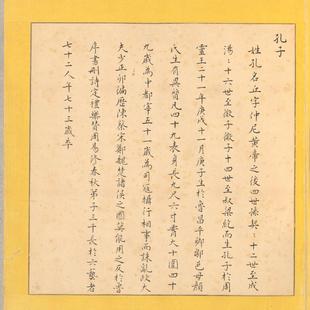 孔子
姓孔名丘字仲尼黃帝之後四世孫契〻十二世至成
湯〻十六世至微子微子十四世至叔梁紇而生孔子於周
靈王二十一年庚戌十一月庚子生於魯昌平鄉鄹邑母顏
氏生有異質凡四十九表身長九尺六寸 大十圍四十
九歲為中都宰五十一歲為司寇攝行相事而誅亂政大
夫少正卯徧歷陳蔡宋鄭魏楚諸侯之國莫能用之反於魯
序書刪詩定禮樂贊周易修春秋弟子三千長於六藝者
七十二人年七十三歲卒